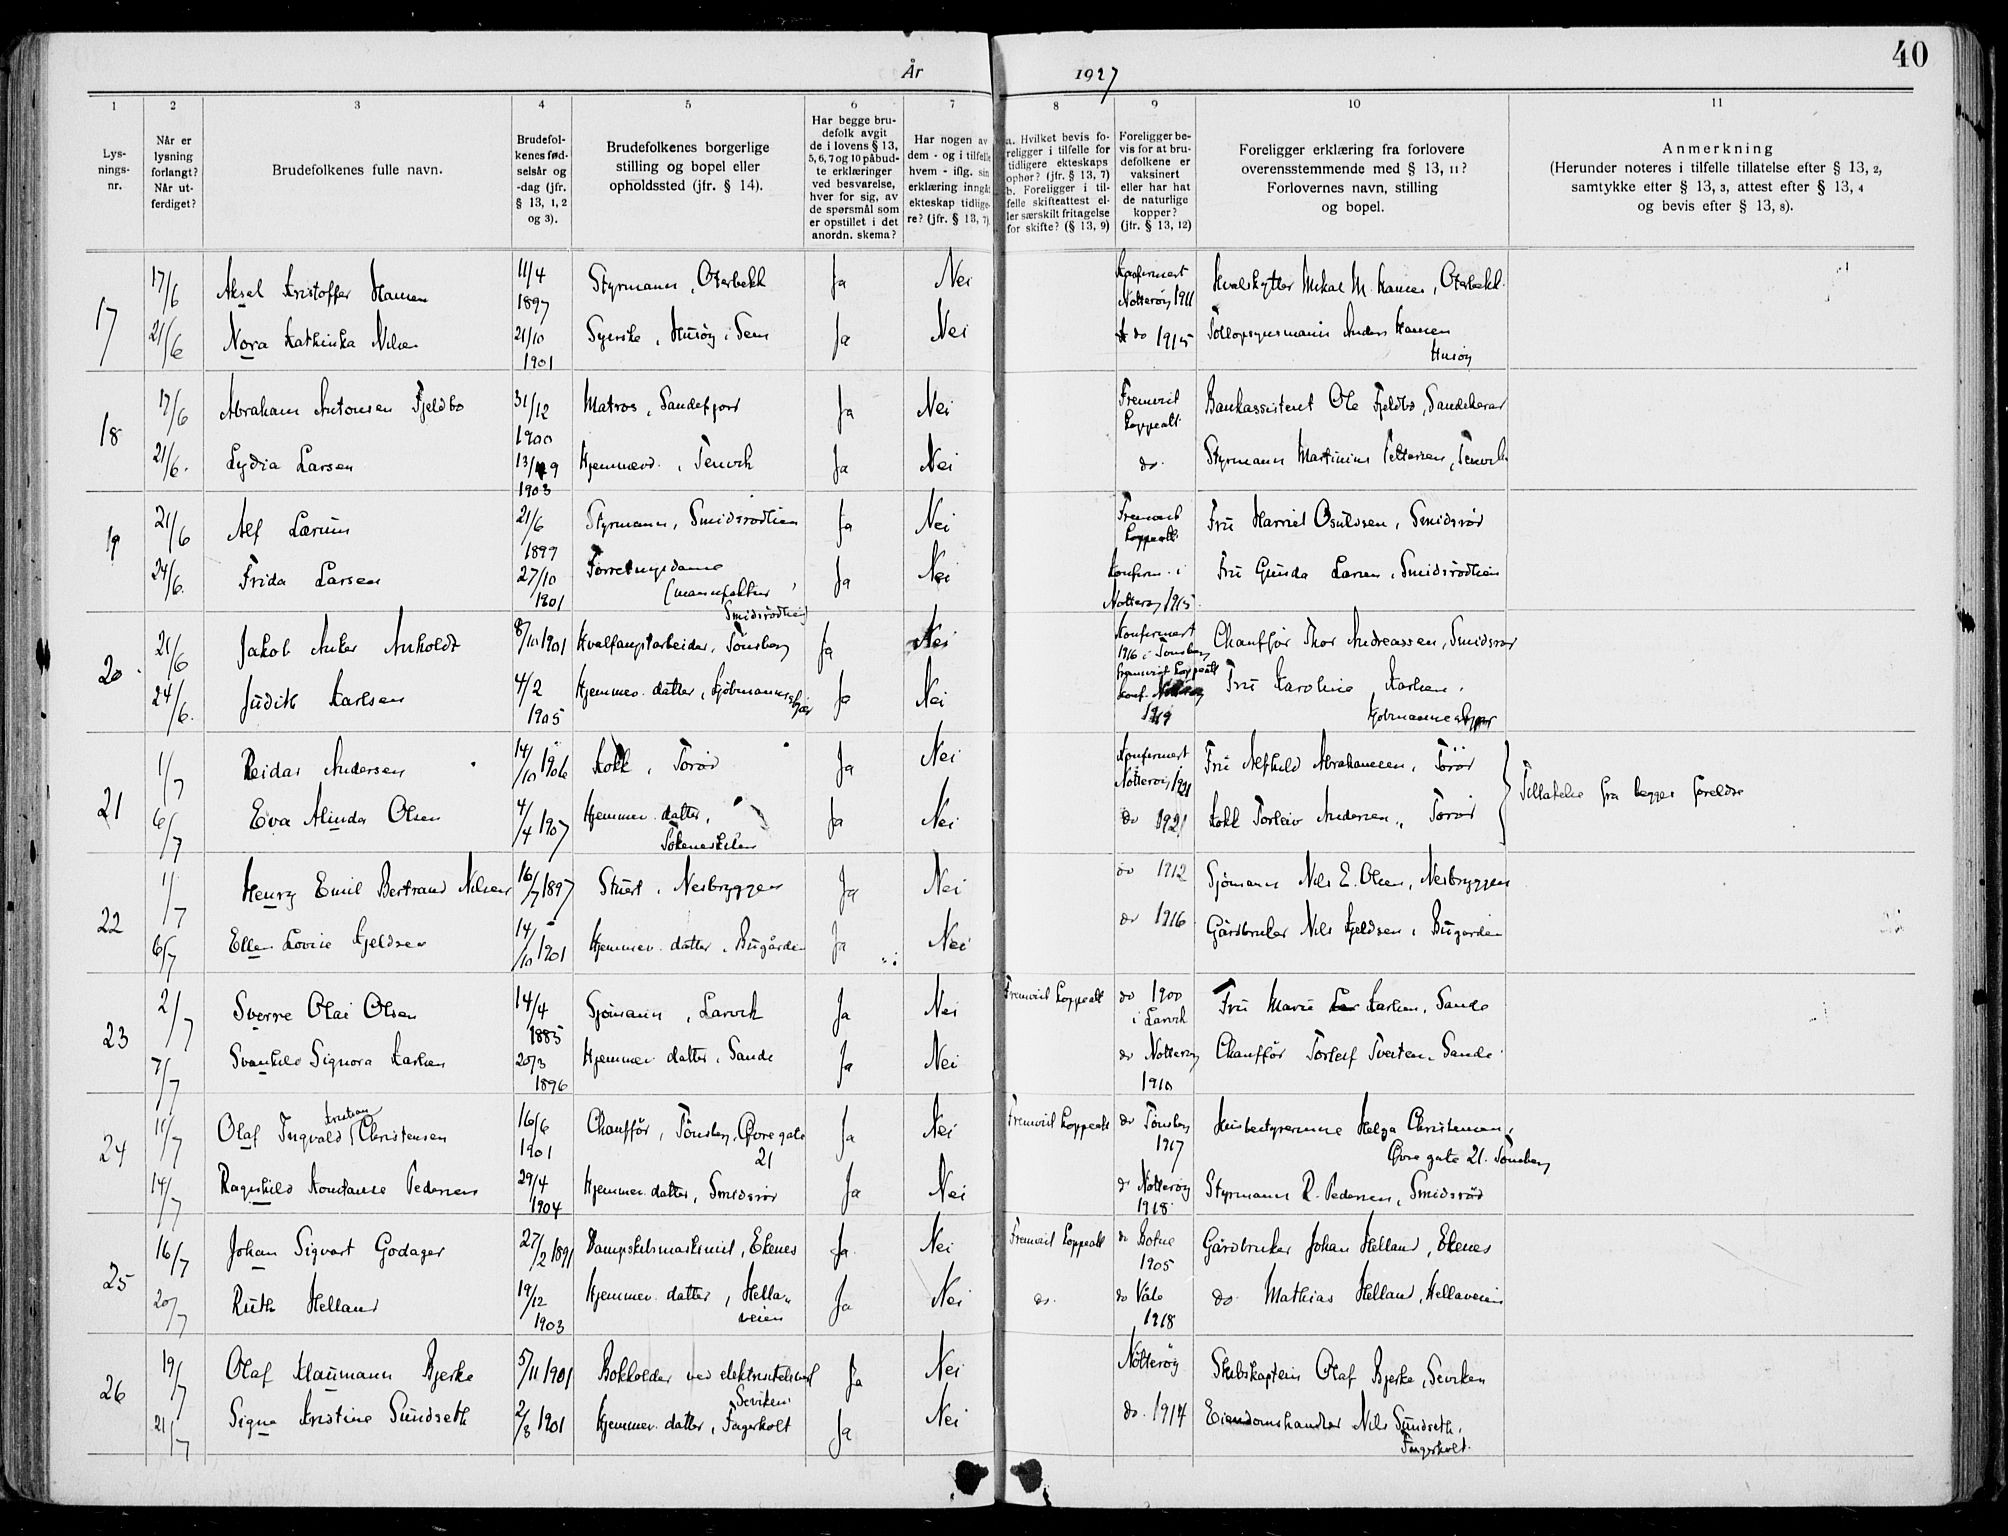 40
År 1927
1 2 3 4 5 6 7 8 9 10 11
Lys-
nings-
nr.
Når er
lysning
forlangt?
Når ut-
ferdiget?
Brudefolkenes fulle navn.
Brudefol-
kenes fød-
selsår og
-dag (jfr.
§ 13, 1, 2
og 3).
Brudefolkenes borgerlige
stilling og bopel eller
opholdssted (jfr. § 14).
Har begge bru-
defolk avgit
de i lovens § 13,
5, 6, 7 og 10 påbud-
te erklæringer
ved besvarelse,
hver for sig, av
de spørsmål som
er opstillet i det
anordn. skema?
Har nogen av
dem - og i tilfelle
hvem - iflg. sin
erklæring inngåt
ekteskap tidlige-
re? (jfr. § 13, 7).
a. Hvilket bevis fo-
religger i tilfelle for
tidligere ekteskaps
ophør? (jfr. § 13, 7)
b. Foreligger i til-
felle skifteattest el-
ler særskilt fritagelse
for skifte? (§ 13, 9)
Foreligger be-
vis for at bru-
defolkene er
vaksinert
eller har hat
de naturlige
kopper?
(jfr. § 13, 12)
Foreligger erklæring fra forlovere
overensstemmende med § 13, 11?
Forlovernes navn, stilling
og bopel.
Anmerkning
(Herunder noteres i tilfelle tillatelse efter § 13, 2,
samtykke efter § 13, 3, attest efter § 13, 4
og bevis efter § 13, 8).
17 17/6 Aksel Kristoffer Hansen 11/4 1897 Styrmann, Oterbekk Ja Nei Konfirmert Nøtterøy 1911 Hvalskytter Mikal M. Hansen, Oterbekk.
21/6 Nora Kathinka Nilsen 21/10 1901 Syerske, Husøy i Sem Ja Nei do 1915 Tollopsynsmann Anders Hansen Husøy
18 17/6 Abraham Antonsen Fjeldbo 31/12 1900 Matros, Sandefjord Ja Nei Fremvist koppeatt. Bankassistent Ole Fjeldbo, Sandeherad
21/6. Lydia Larsen 1903 Hjemmevd., Tenvik Ja Nei do. Styrmann Martinius Pettersen, Tenvik
19 21/6 Alf Lærum 21/6 1899 Styrmann, Smidsrødtien Ja Nei Fremvist koppeatt. Fru Harriet Osulvsen, Smidsrød
24/6. Frida Larsen 27/10 1901 Forretningsdame (manufaktur, Smidsrødtien) Ja Nei Konfirm. i Nøtterøy 1915. Fru Gunda Larsen, Smidsrødtien
20 21/6 Jakob Anker Anholdt 8/10 1901 Hvalfangstarbeider, Tønsberg Ja Nei Konfirmert 1916 i Tønsberg fremvist koppeatt Chauffør Thor Andreassen, Smidsrød
24/6. Judith Karlsen 4/2 1905 Hjemmev. datter, Kjøbmannskjær Ja Nei konf. Nøtterøy 1919 Fru Karoline Karlsen, Kjøbmannskjær
21 1/7 Reidar Andersen 14/10 1906 Kokk, Torød Ja Nei Konfirmert Nøtterøy 1921 Fru Alfhild Abrahamsen, Torød } Tillatelse fra begges foreldre
6/7 Eva Alinda Olsen 4/4 1907 Hjemmev. datter, Tokeneskilen Ja Nei do 1921 Kokk Torleiv Andersen, Torød
22 1/7 Henry Emil Bertrand Nilsen 16/7 1897 Stuert, Nesbryggen Ja Nei do 1912 Sjømann Nils E. Olsen, Nesbryggen
6/7 Ellen Lovise Kjeldsen 14/10 1901 Hjemmev. datter, Bugården Ja Nei do 1916 Gårdbruker Nils Kjeldsen, Bugården
23 2/7 Sverre Olai Olsen 14/4 1885 Sjømann, Larvik Ja Nei Fremvist koppeatt do 1900 i Larvik Fru Marie Karlsen, Sande
7/7 Svanhild Signora Karlsen 20/3 1896 Hjemmev. datter, Sande Ja Nei do Nøtterøy 1910 Chauffør Torleif Tveiten, Sande
24 11/7 Olaf Ingvald Kristian Christensen 16/6 1901 Chauffør, Tønsberg, Øvre gate 21 Ja Nei Fremvist koppeatt do Tønsberg 1917 Husbestyrerinne Helga Christensen, Øvre gate 21. Tønsberg
14/7 Ragnhild Konstanse Pedersen 29/4 1904 Hjemmev. datter, Smidsrød Ja Nei do Nøtterøy 1918 Styrmann R. Pedersen, Smidsrød
25 16/7 Johan Sigvart Godager 27/2 1891 Dampskibsmaskinist, Ekenes Ja. Nei Fremvist koppeatt do Botne 1905 Gårdbruker Johan Helland, Ekenes
20/7 Ruth Helland 19/12 1903 Hjemmev. datter, Hella-veien Ja Nei do. do Våle 1918 do. Mathias Helland, Hellaveien
26 19/7 Olaf Klaumann Bjerke 5/11 1901 Bokholder ved elektrisitetsverk Seviken Ja Nei Nøtterøy Skibskaptein Olaf Bjerke, Seviken
21/7 Signe Kristine Sundseth 2/8 1901 Hjemmev. datter, Fagerholt Ja Nei do. 1914 Eiendomshandler Nils Sundseth, Fagerholt.